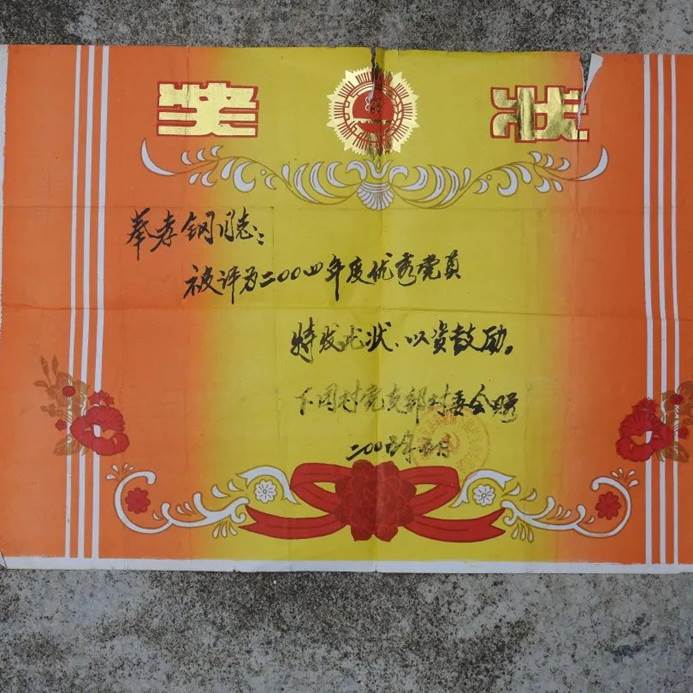 奖 状
奉孝钢同志：
被评为二00四年度优秀党员
特发此状、以资鼓励。
下冈村党支部村委会赐
二00五年 月